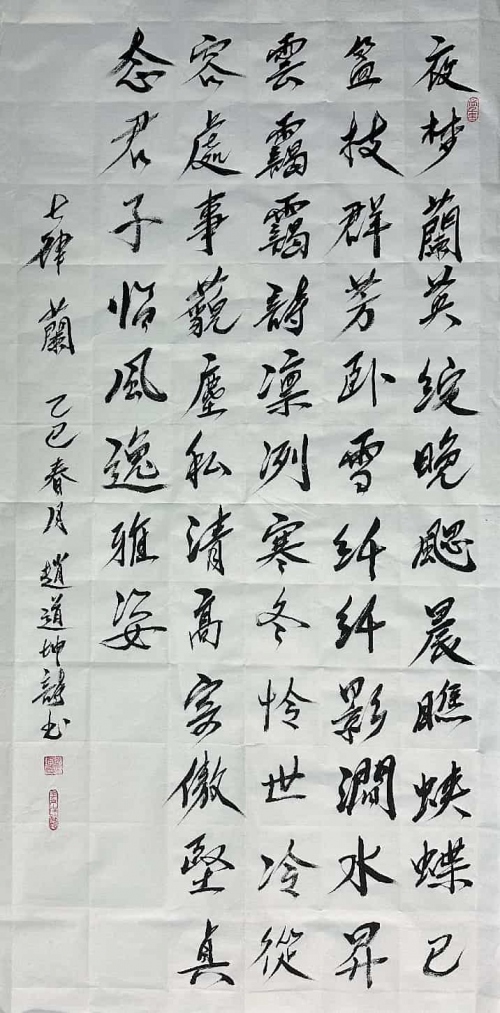 夜梦蘭英綻晚颸晨瞧蛱蝶已
盈枝群芳卧雪纤纤影澗水昇
雲靄靄詩凛冽寒冬怜世冷從
容處事藐塵私清高寄傲堅真
态君子临風逸雅姿
七律 蘭 乙巳春月趙道坤詩书